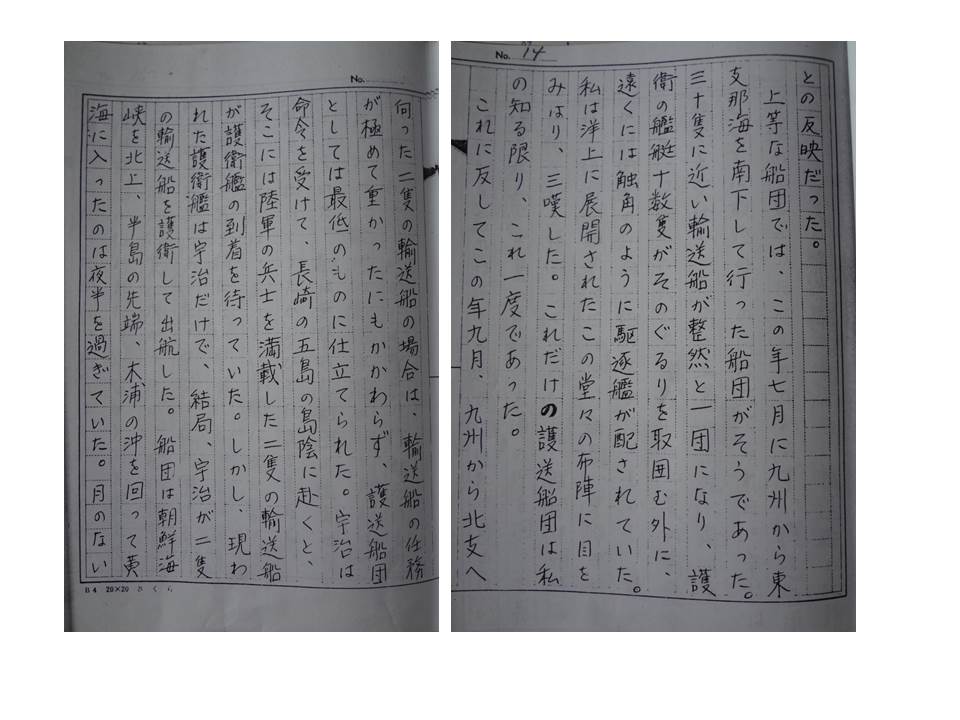 No. 14
との反映だった。
上等な船団では、この年七月に九州から東
支那海を南下して行った船団がそうであった。
三十隻に近い輸送船が整然と一団になり、護
衛の艦艇十数隻がそのぐるりを取囲む外に、
遠くには触角のように駆逐艦が配されていた。
私は洋上に展開されたこの堂々の布陣に目を
みはり、三嘆した。これだけの護送船団は私
の知る限り、これ一度であった。
これに反してこの年九月、九州から北支へ
No.
向った二隻の輸送船の場合は、輸送船の任務
が極めて重かったにもかかわらず、護送船団
としては最低のものに仕立てられた。宇治は
命令を受けて、長崎の五島の島陰に赴くと、
そこには陸軍の兵士を満載した二隻の輸送船
が護衛艦の到着を待っていた。しかし、現わ
れた護衛艦は宇治だけで、結局、宇治が二隻
の輸送船を護衛して出航した。船団は朝鮮海
峡を北上、半島の先端、木浦の沖を回って黄
海に入ったのは夜半を過ぎていた。月のない
B4 20×20 さくら